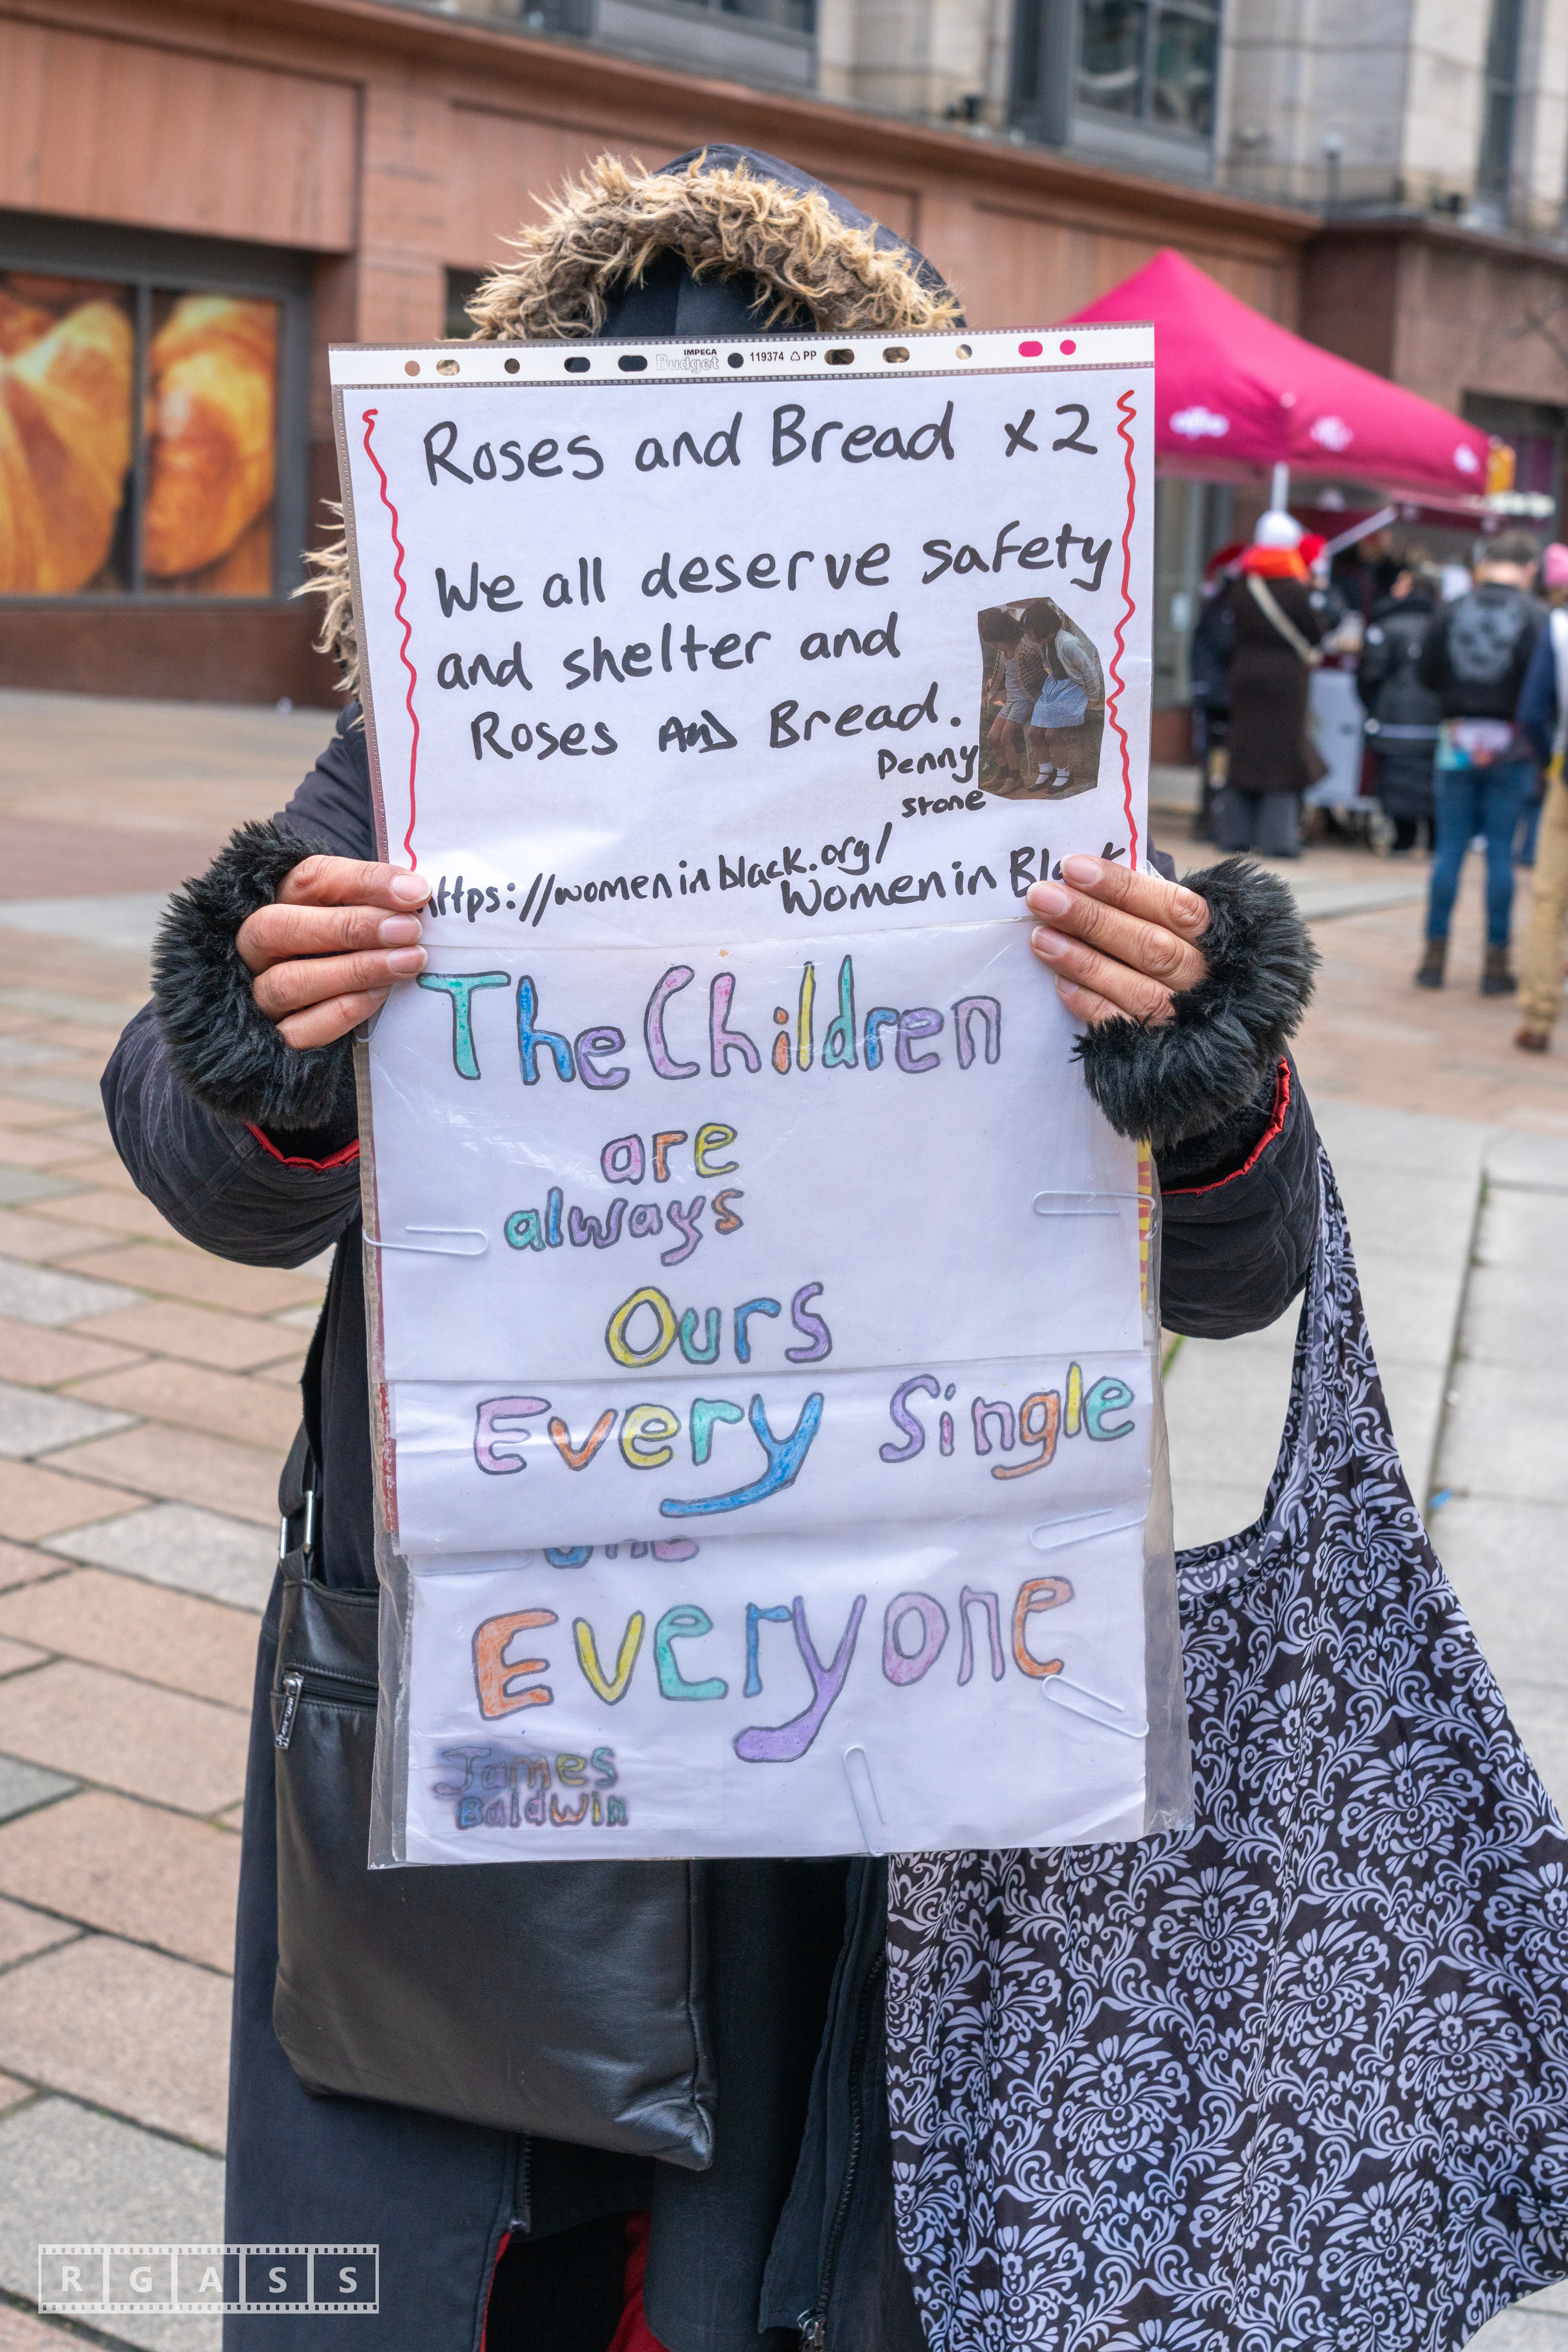 IMPEGA
Budget
119374 PP
Roses and Bread x2
We all deserve safety
and shelter and
Roses AND Bread.
Penny
stone
https://womeninblack.org/
Women in Black
The Children
are
always
Ours
Every Single
one
Everyone
James
Baldwin
RGASS